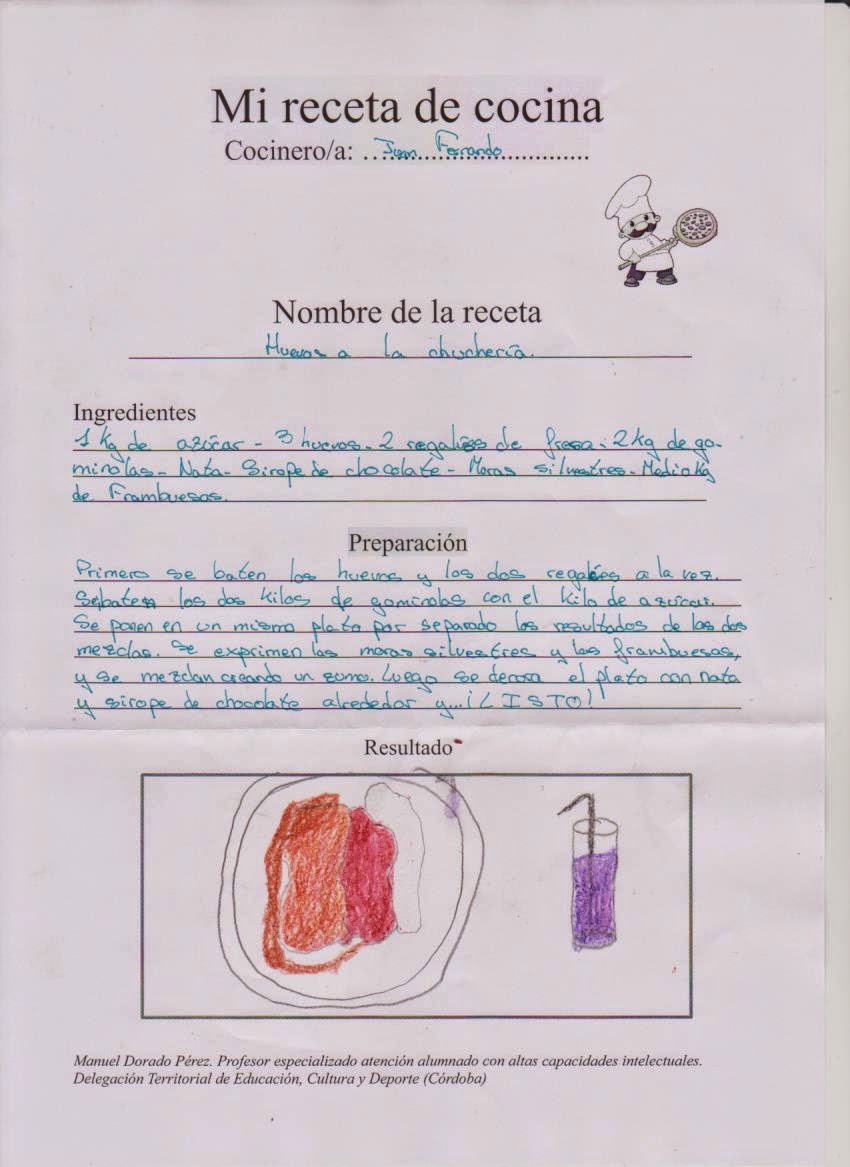 Mi receta de cocina
Cocinero/a: Juan Ferrando
Nombre de la receta
Huevos a la chuchería.
Ingredientes
1 kg de azúcar - 3 huevos - 2 regalises de fresa - 2 kg de go-
minolas - Nata - Sirope de chocolate - Moras silvestres - Medio kg
de Frambuesas.
Preparación
Primero se baten los huevos y los dos regalises a la vez.
Se baten los dos kilos de gominolas con el kilo de azúcar.
Se ponen en un mismo plato por separado los resultados de las dos
mezclas. Se exprimen las moras silvestres y las frambuesas,
y se mezclan creando un zumo. Luego se decora el plato con nata
y sirope de chocolate alrededor y...¡LISTO!
Resultado
Manuel Dorado Pérez. Profesor especializado atención alumnado con altas capacidades intelectuales.
Delegación Territorial de Educación, Cultura y Deporte (Córdoba)